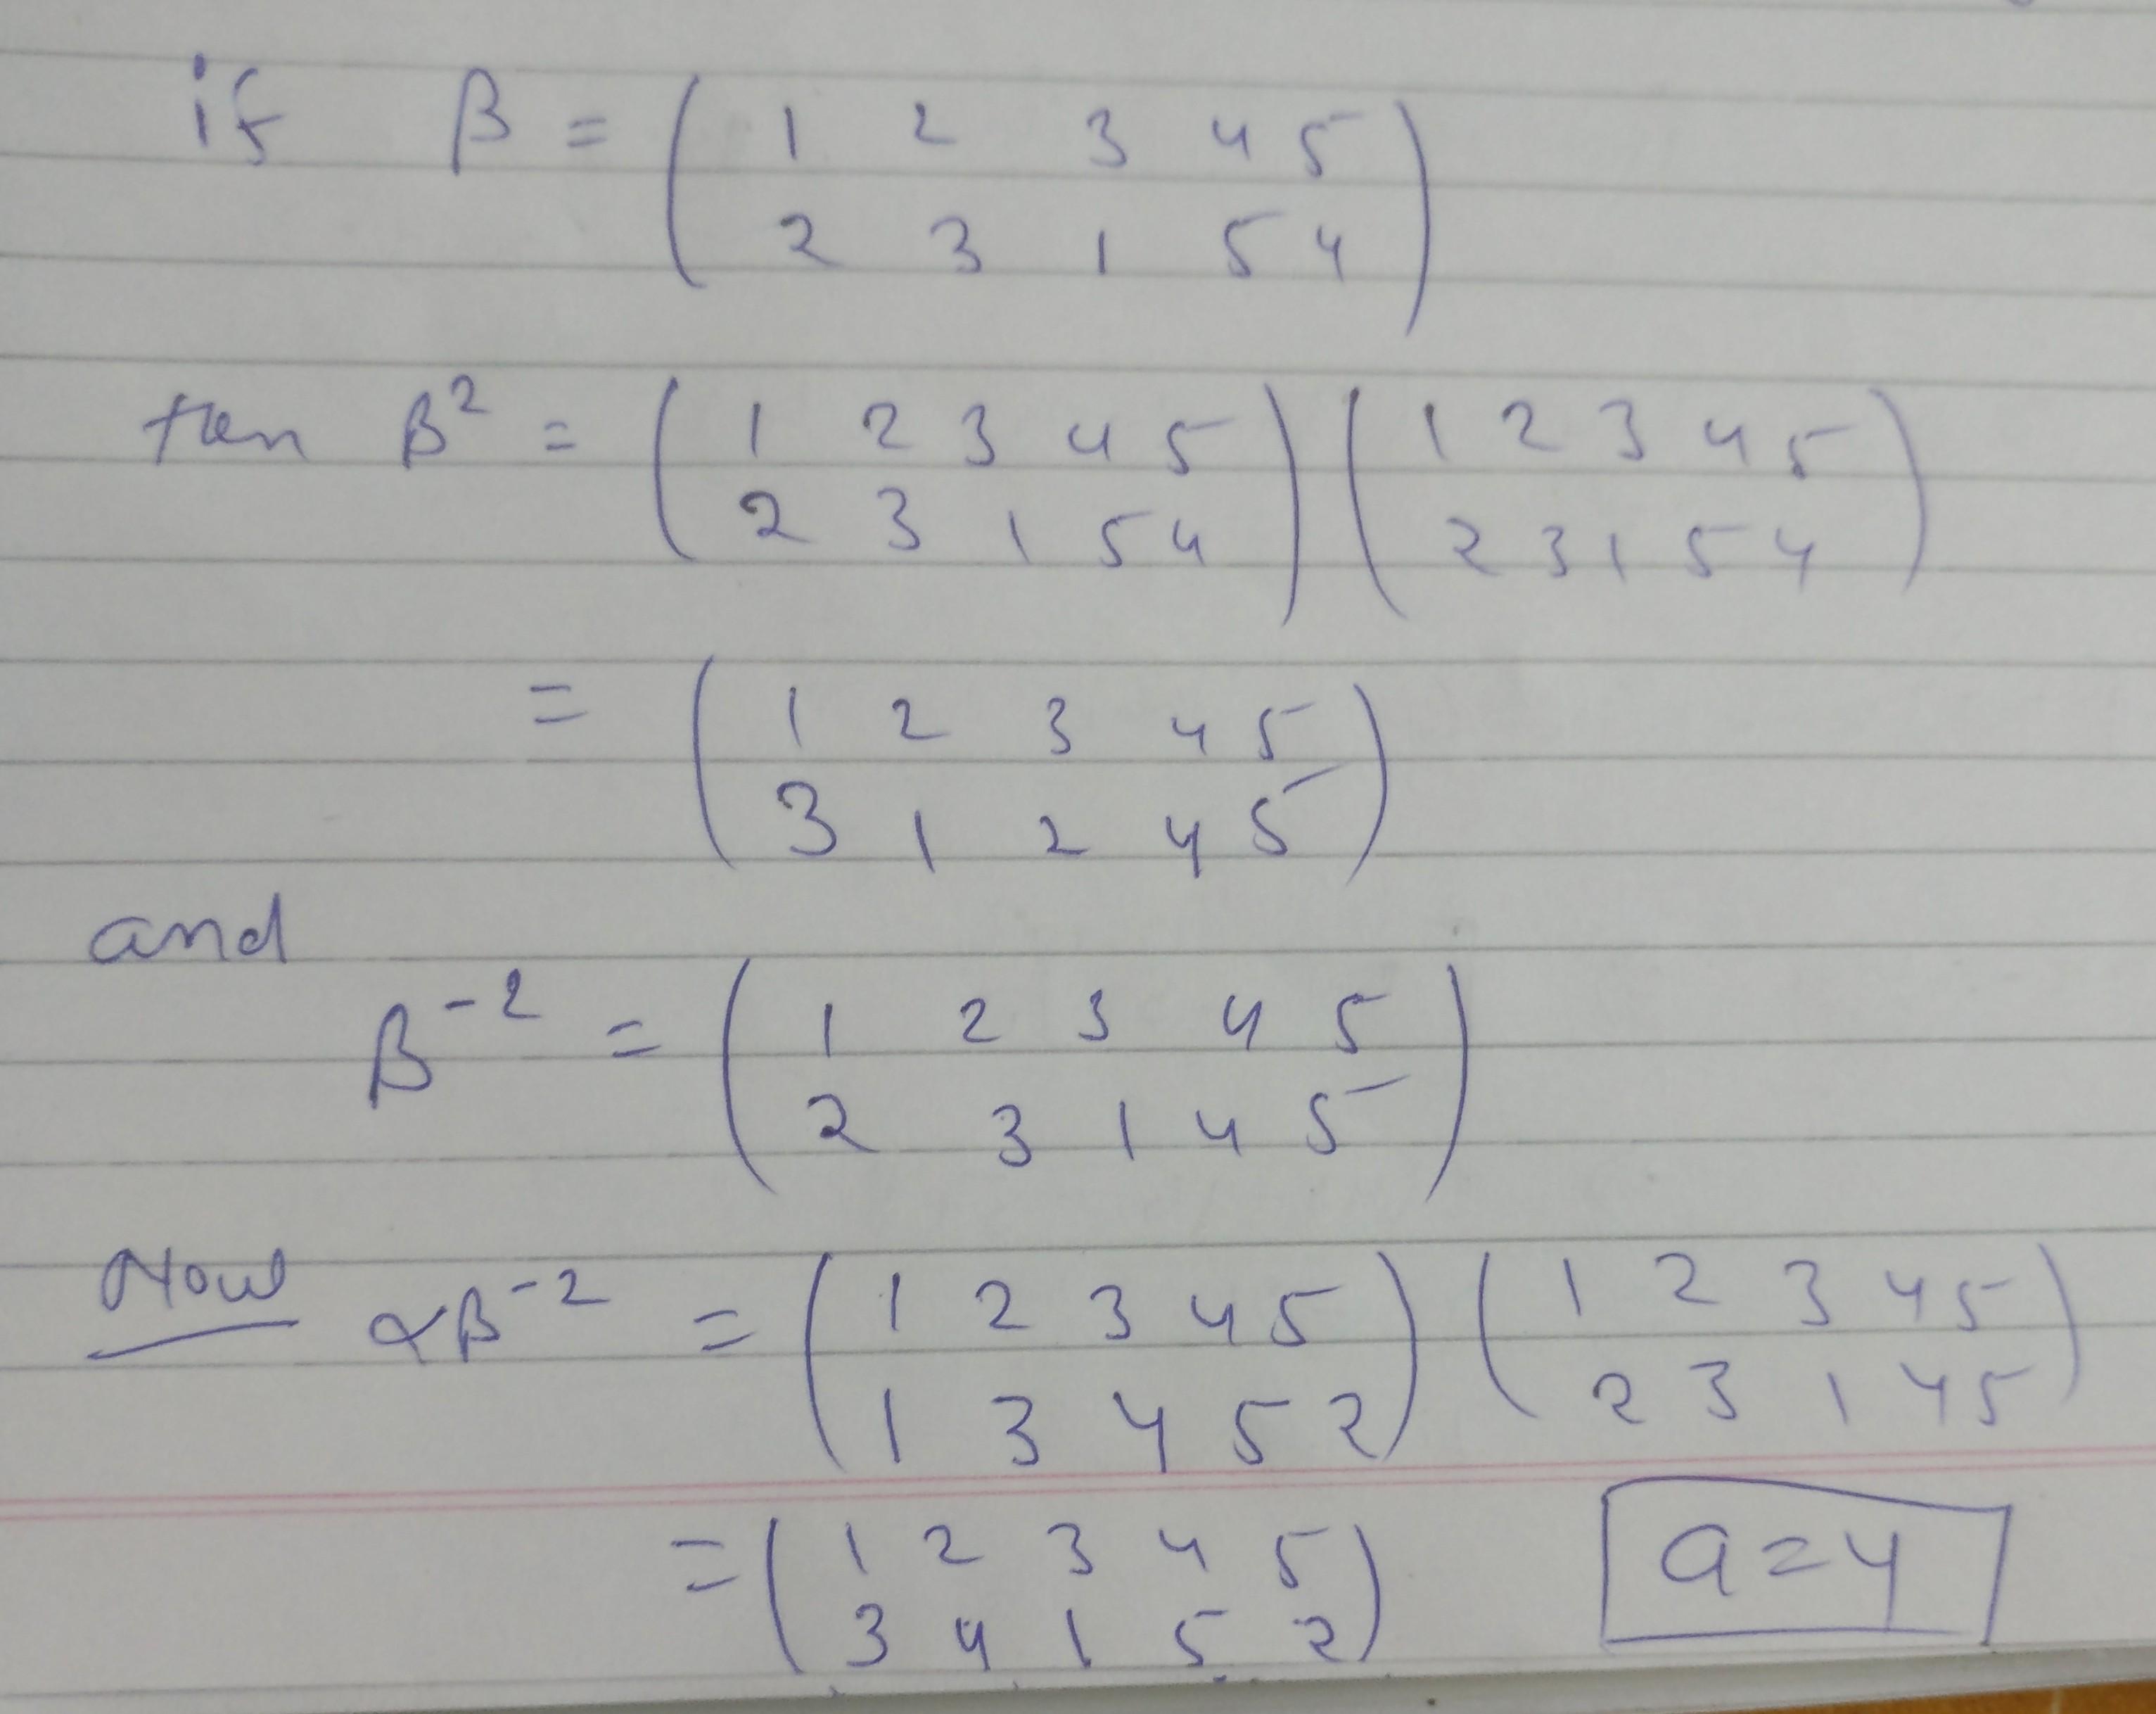 if β = ( 1 2 3 4 5
2 3 1 5 4 )
then β² = ( 1 2 3 4 5 ) ( 1 2 3 4 5
2 3 1 5 4 ) ( 2 3 1 5 4 )
= ( 1 2 3 4 5
3 1 2 4 5 )
and
β⁻² = ( 1 2 3 4 5
2 3 1 4 5 )
Now αβ⁻² = ( 1 2 3 4 5 ) ( 1 2 3 4 5
1 3 4 5 2 ) ( 2 3 1 4 5 )
= ( 1 2 3 4 5
3 4 1 5 2 ) a=4